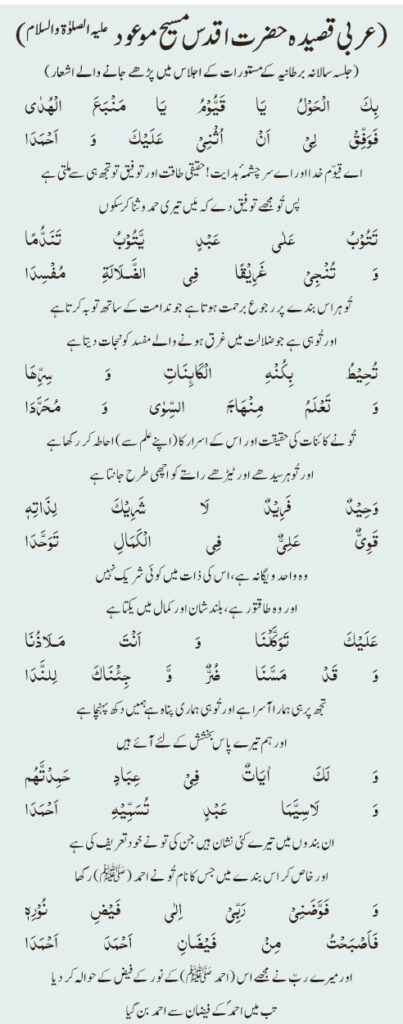 (عربی قصیدہ حضرت اقدس مسیح موعود علیہ الصلوٰۃ والسلام)
(جلسہ سالانہ برطانیہ کے مستورات کے اجلاس میں پڑھے جانے والے اشعار)
بِكَ الْحَوْلُ يَا قَيُّوْمُ يَا مَنْبَعَ الْهُدٰى
فَوَفِّقْ لِيْ اَنْ اُثْنِيْ عَلَيْكَ وَ اَحْمَدَا
اے قیوّم خدا اور اے سرچشمۂ ہدایت! حقیقی طاقت اور توفیق تو تجھ سے ہی ملتی ہے
پس تُو مجھے توفیق دے کہ میں تیری حمد و ثنا کر سکوں
تَتُوْبُ عَلٰى عَبْدٍ يَّتُوْبُ تَنَدُّمًا
وَ تُنْجِيْ غَرِيْقًا فِى الضَّلَالَةِ مُفْسِدَا
تُو ہر اس بندے پر رجوع برحمت ہوتا ہے جو ندامت کے ساتھ توبہ کرتا ہے
اور تُو ہی ہے جو ضلالت میں غرق ہونے والے مفسد کو نجات دیتا ہے
تُحِيْطُ بِكُنْهِ الْكَائِنَاتِ وَ سِرِّهَا
وَ تَعْلَمُ مِنْهَاجَ السِّوٰى وَ مُحَرَّدَا
تُو نے کائنات کی حقیقت اور اس کے اسرار کا (اپنے علم سے) احاطہ کر رکھا ہے
اور تُو ہر سیدھے اور ٹیڑھے راستے کو اچھی طرح جانتا ہے
وَحِيْدٌ فَرِيْدٌ لَا شَرِيْكَ لِذَاتِهٖ
قَوِيٌّ عَلِيٌّ فِى الْكَمَالِ تَوَحَّدَا
وہ واحد و یگانہ ہے، اس کی ذات میں کوئی شریک نہیں
اور وہ طاقتور ہے، بلند شان اور کمال میں یکتا ہے
عَلَيْكَ تَوَكَّلْنَا وَ اَنْتَ مَلَاذُنَا
وَ قَدْ مَسَّنَا ضُرٌّ وَّ جِئْنَاكَ لِلنَّدَا
تجھ پر ہی ہمارا آسرا ہے اور تُو ہی ہماری پناہ ہے ہمیں دکھ پہنچا ہے
اور ہم تیرے پاس بخشش کے لئے آئے ہیں
وَ لَكَ اٰيَاتٌ فِيْ عِبَادٍ حَمِدْتَّهُم
وَ لَاسِيَّمَا عَبْدٍ تُسَمِّيْهِ اَحْمَدَا
ان بندوں میں تیرے کئی نشان ہیں جن کی تو نے خود تعریف کی ہے
اور خاص کر اس بندے میں جس کا نام تُو نے احمد (ﷺ) رکھا
وَ فَوَّضَنِيْ رَبِّيْ اِلٰى فَيْضِ نُوْرِهٖ
فَاَصْبَحْتُ مِنْ فَيْضَانِ اَحْمَدَ اَحْمَدَا
اور میرے ربّ نے مجھے اس (احمد ﷺ) کے نور کے فیض کے حوالہ کر دیا
تب میں احمدؐ کے فیضان سے احمد بن گیا